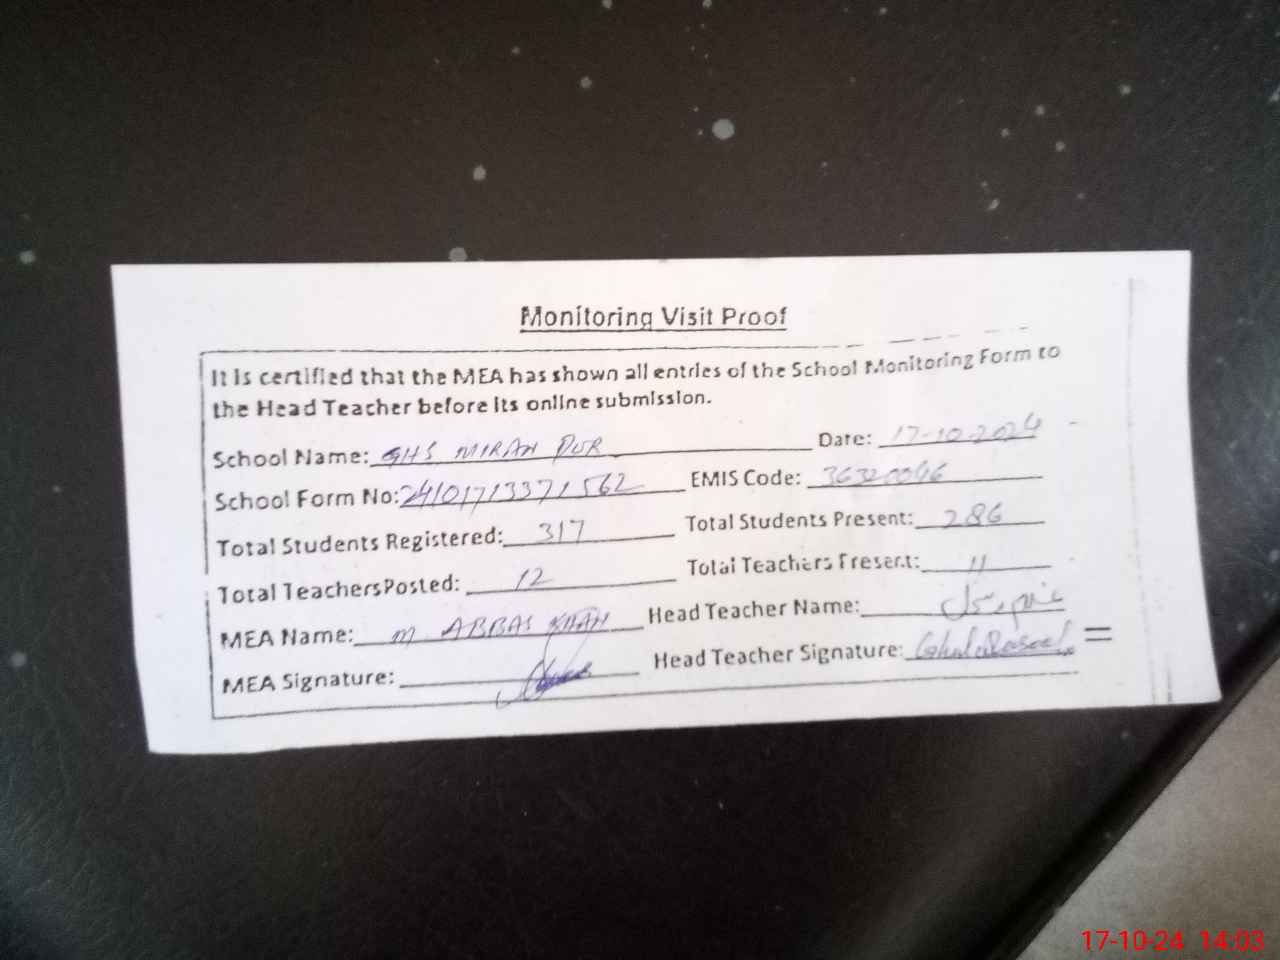 Monitoring Visit Proof
It is certified that the MEA has shown all entries of the School Monitoring Form to
the Head Teacher before its online submission.
School Name: GHS MIRAN PUR Date: 17-10-2024
School Form No: 24101713371562 EMIS Code: 36320046
Total Students Registered: 317 Total Students Present: 286
Total Teachers Posted: 12 Total Teachers Present: 11
MEA Name: M ABBAS KHAN Head Teacher Name:
MEA Signature: Head Teacher Signature:
17-10-24 14:03